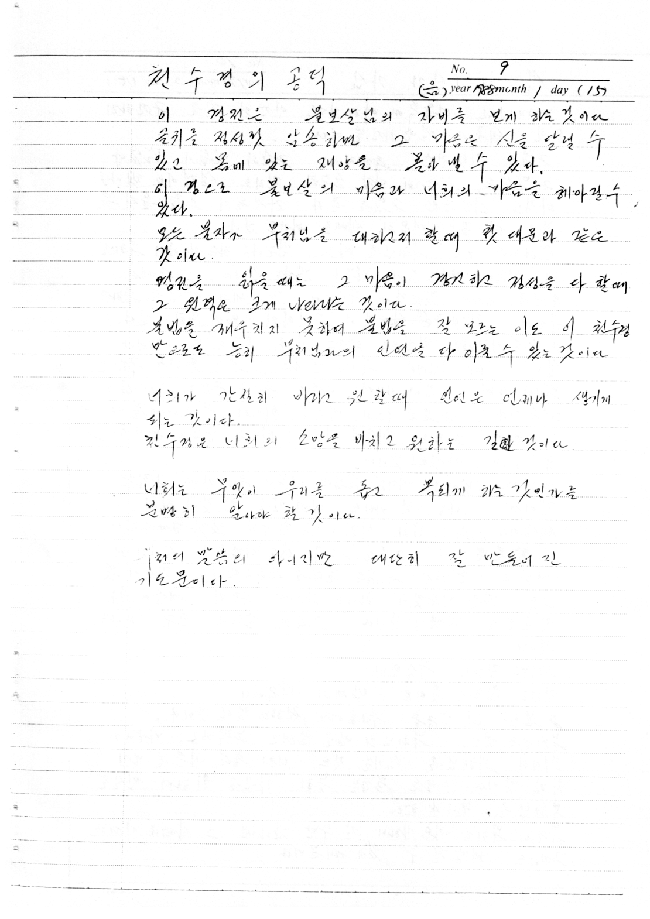 No. 9
천수경의 공덕
(음) year 1988 month 1 day (15)
이 경전은 불보살님의 자비를 보게 하는 것이다
글귀를 정성껏 암송하면 그 마음은 신을 알릴 수
있고 몸에 있는 재앙을 몰아낼 수 있다.
이 경으로 불보살의 마음과 너희의 마음을 헤아릴 수
있다.
모든 불자가 부처님을 대하고저 할때 첫 대문과 같은
것이다.
경전를 읽을때는 그 마음이 경건하고 정성을 다 할때
그 원력은 크게 나타나는 것이다.
불법을 깨우치지 못하며 불법을 잘 모르는 이도 이 천수경
만으로도 능히 부처님과의 인연을 다 이룰 수 있는 것이다
너희가 간절히 바라고 원할때 원인은 언제나 생기게
되는 것이다.
천수경은 너희의 소망을 바치고 원하는 길인 것이다
너희는 무엇이 우리를 돕고 복되게 하는 것인가를
분명히 알아야 할 것이다.
말씀은 아니지만 대단히 잘 만들어진
기도문이다.